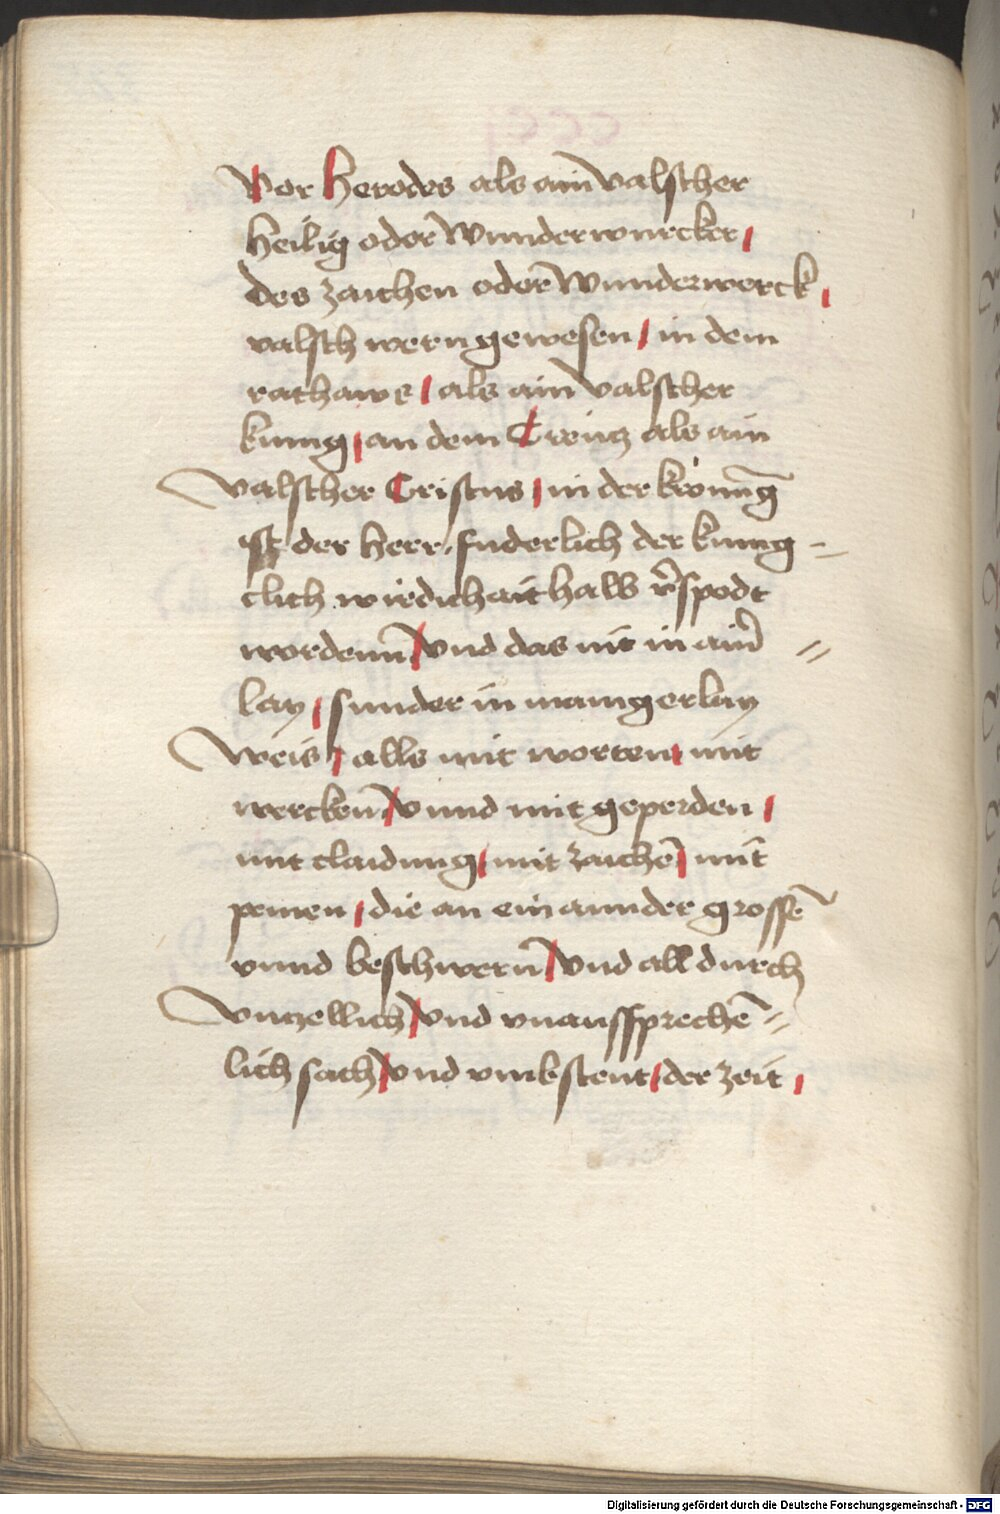 Vor Herodes als ain valscher
heilig oder wunderwurcker /
des zaichen oder wunderwerck /
valsch wern gewesen / in dem
rathaws / als ain valscher
kunig / an dem Creutz als ain
valscher Cristus / in der kronung
ist der herr. suderlich der kunig -
clich wirdichait halb v̄spodt
wordenn̄ / vnd das nit in ain̄ =
lay / sunder in manigerlay
weis / alls mit worten / mit
wercken̄ / vnnd mit geperden /
mit claidung / mit zaichē / mit
penen / die an ein annder grossē
vnnd beschwern̄ / vnd all durch
vnzellich / vnd vnaussprechē =
lich sach / vnd vmbstent / der zeit /
Digitalisierung gefördert durch die Deutsche Forschungsgemeinschaft - DFG